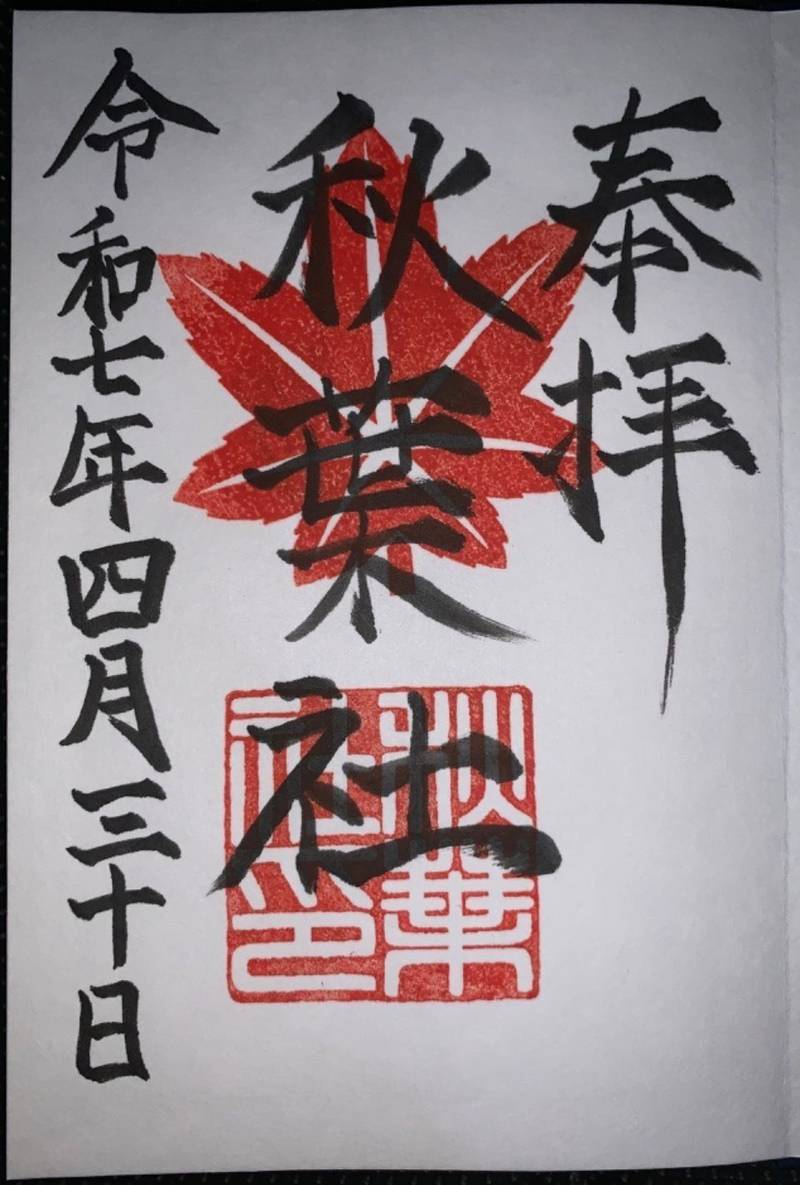 奉拝
秋葉社
秋葉
社印
令和七年四月三十日